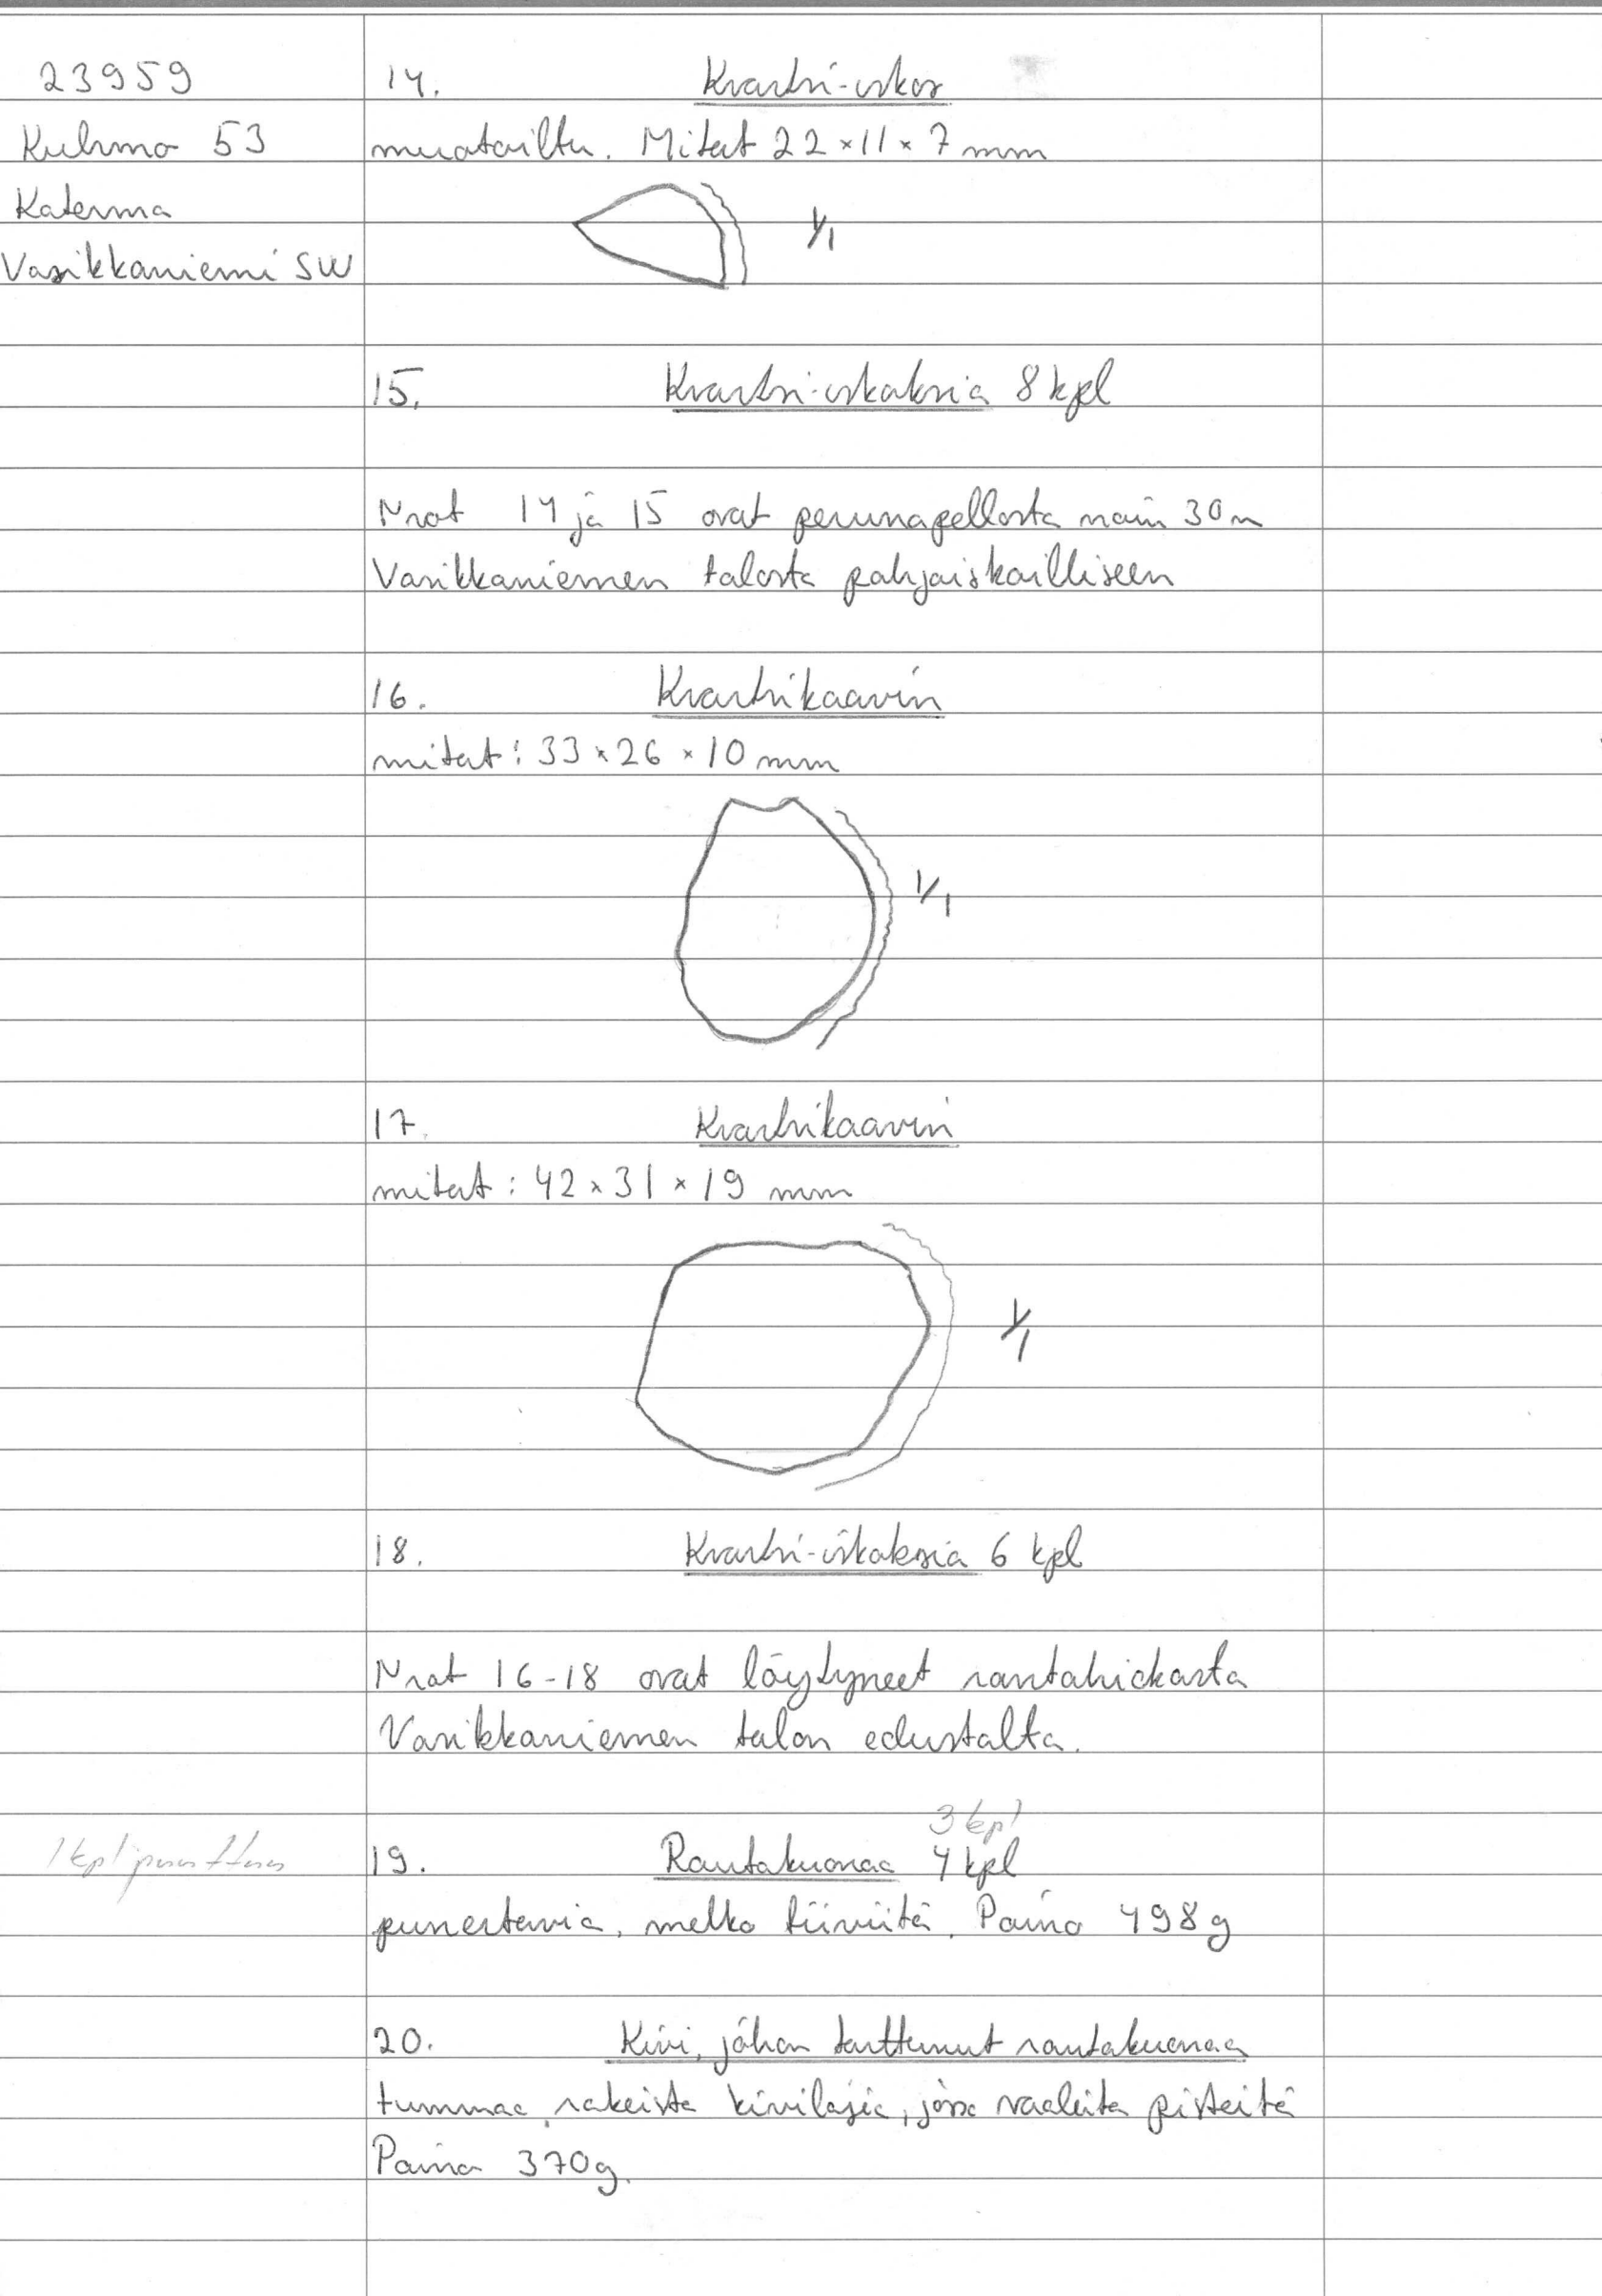 23959
Kuhmo 53
Katerma
Vasikkaniemi SW
14. Kvartsi-iskos
muotoiltu. Mitat 22 × 11 × 7 mm
1/1
15. Kvartsi-iskoksia 8 kpl
Nrot 14 ja 15 ovat perunapellosta noin 30 m
Vasikkaniemen talosta pohjoiskoilliseen
16. Kvartsikaavin
mitat: 33 × 26 × 10 mm
1/1
17. Kvartsikaavin
mitat: 42 × 31 × 19 mm
1/1
18. Kvartsi-iskoksia 6 kpl
Nrot 16-18 ovat löytyneet rantahiekasta
Vasikkaniemen talon edustalta.
3 kpl
1 kpl puuttuu
19. Rautakuonaa 4 kpl
punertavia, melko tiiviitä. Paino 498 g
20. Kivi, johon tarttunut rautakuonaa
tummaa, rakeista kivilajia, jossa vaaleita pisteitä
Paino 370 g.